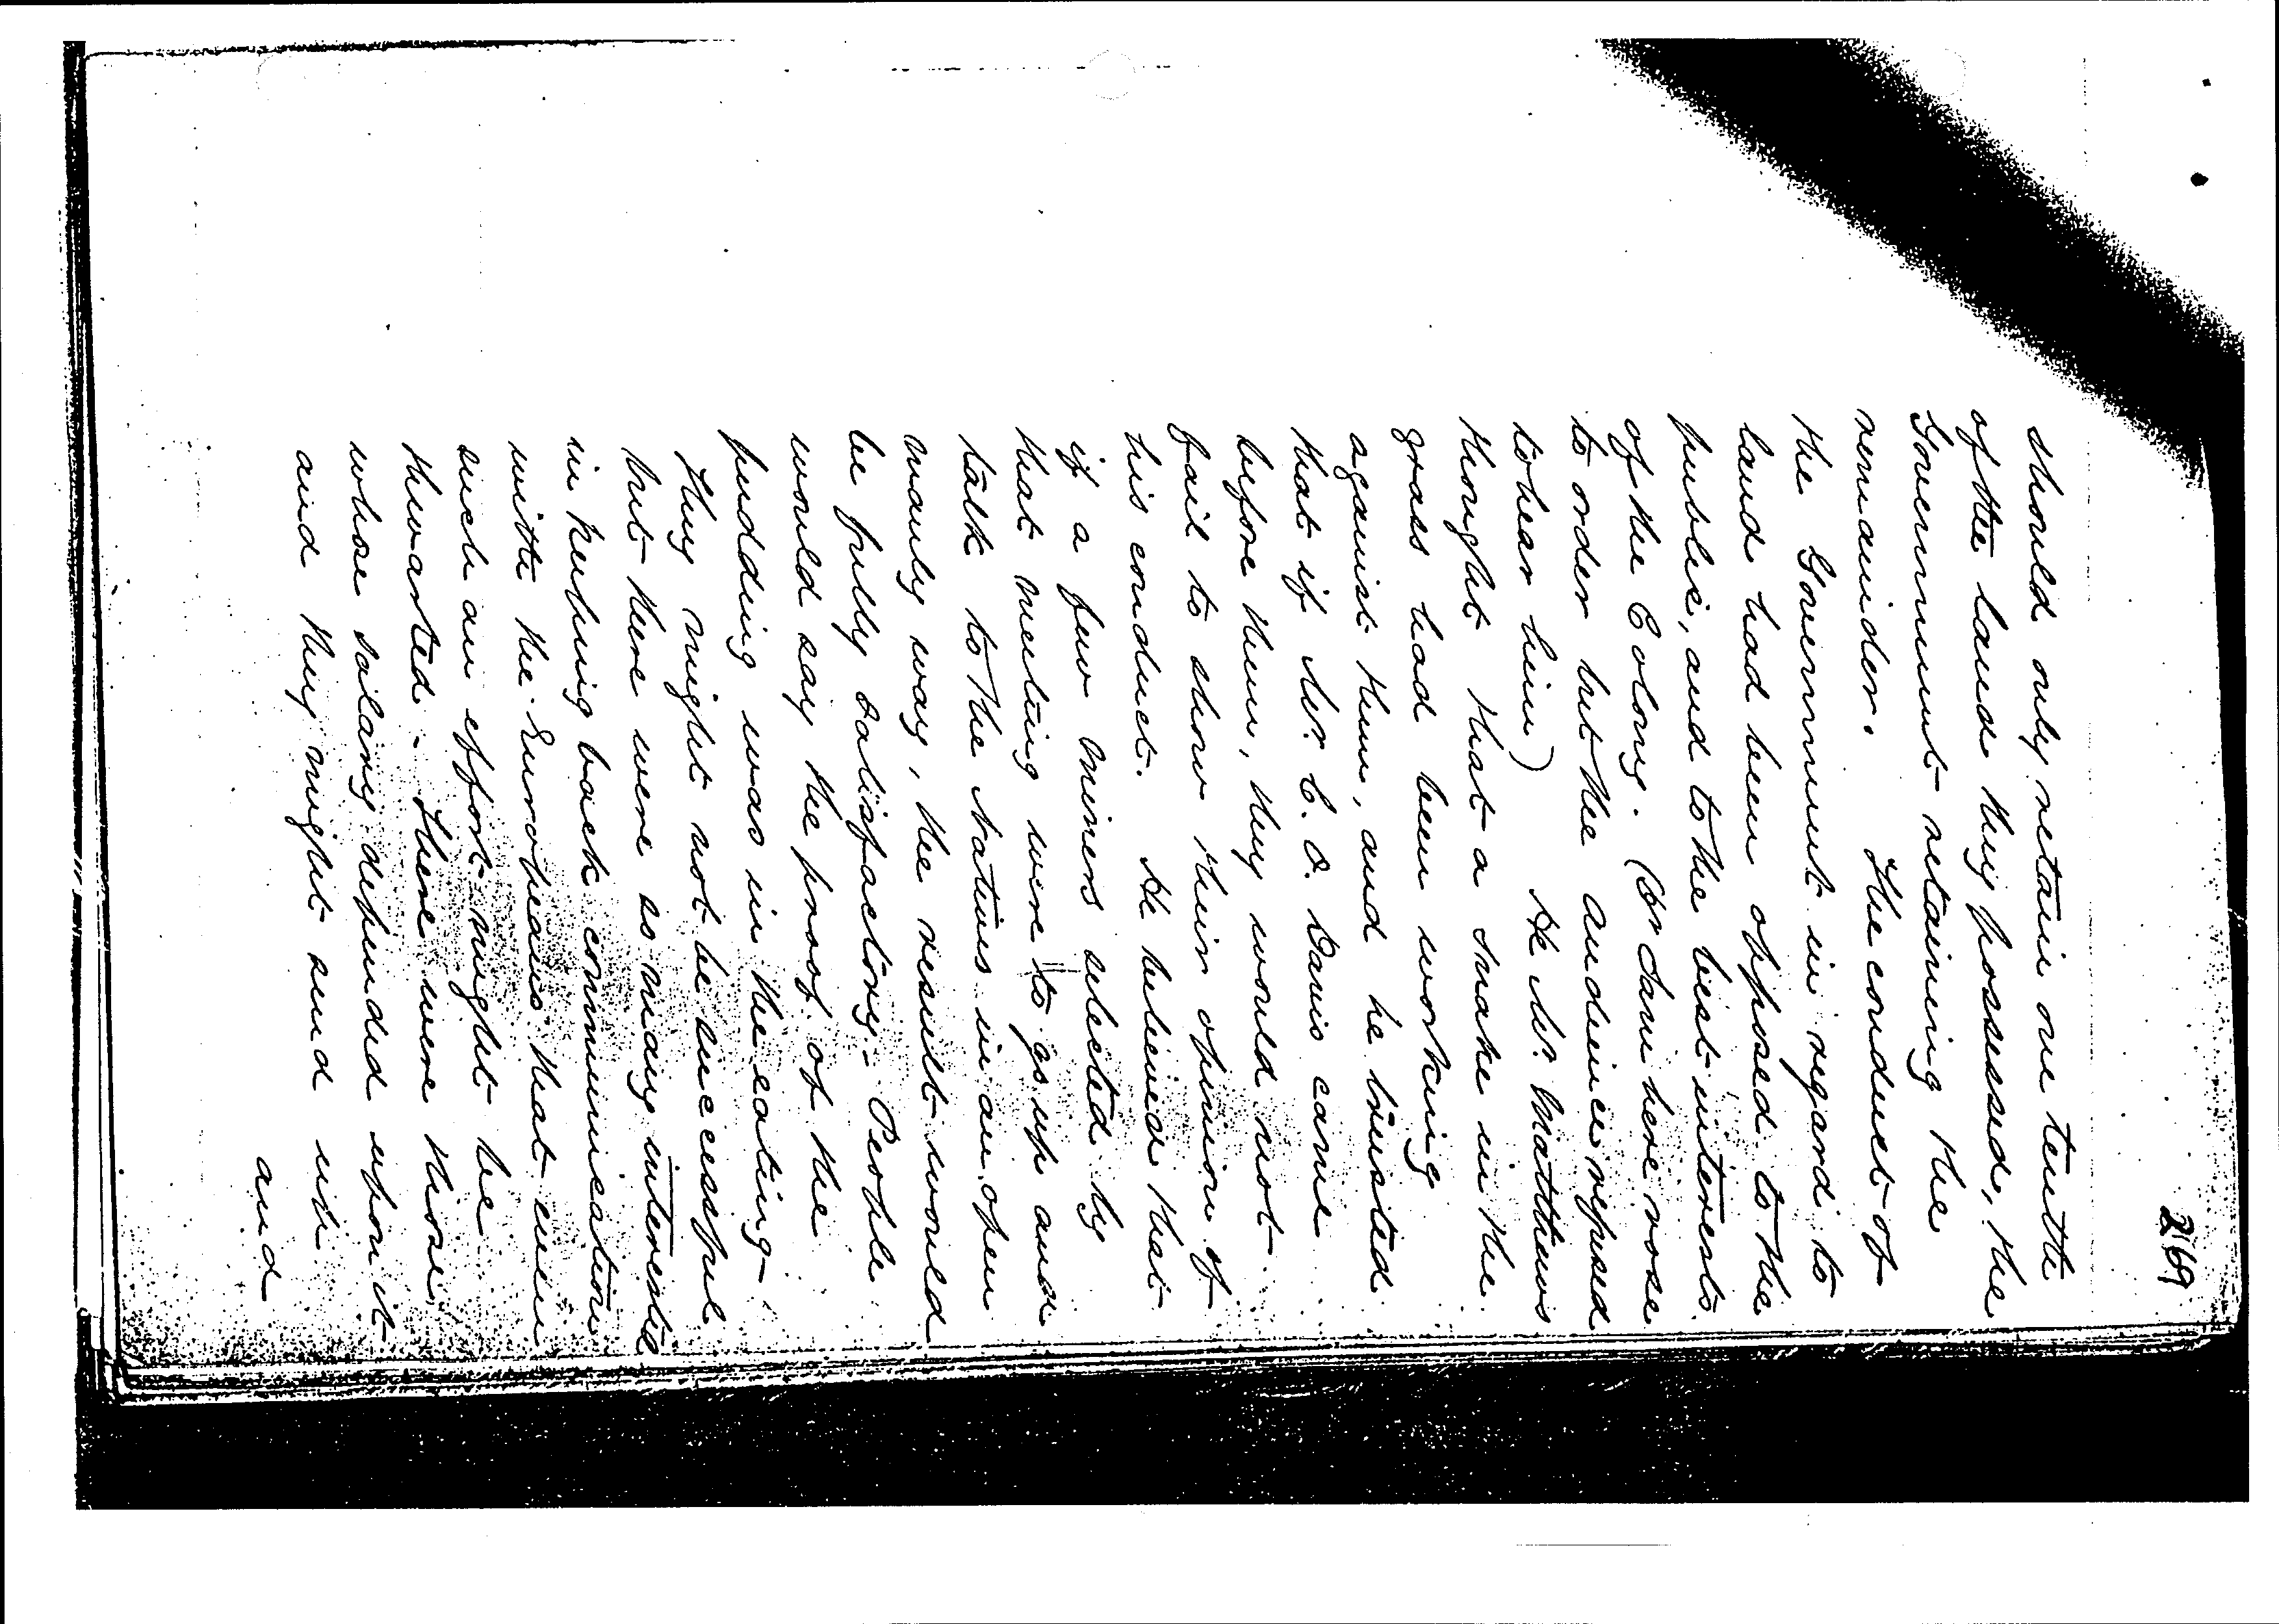 269
should only retain one tenth
of the land they possessed, the
Government retaining the
remainder. The conduct of
the Government in regard to
land had been opposed to the
public, and to the best interests
of the Colony. (Dr Sam here rose
to order but the audience refused
to hear him) He Mr. Matthews
thought that a snake in the
grass had been working
against them, and he trusted
that if Mr. C. O. Davis came
before them, they would not
fail to show their opinion of
his conduct. He believed that
if a few miners selected by
that meeting were to go up and
talk to the Natives in an open
manly way, the result would
be fully satisfactory. People
would say the proof of the
pudding was in the eating -
they might not be successful
but there were so many interested
in putting back communication
with the Europeans that even
such an effort might be
thwarted. There were those
whose salary depended upon it
and they might send up
and